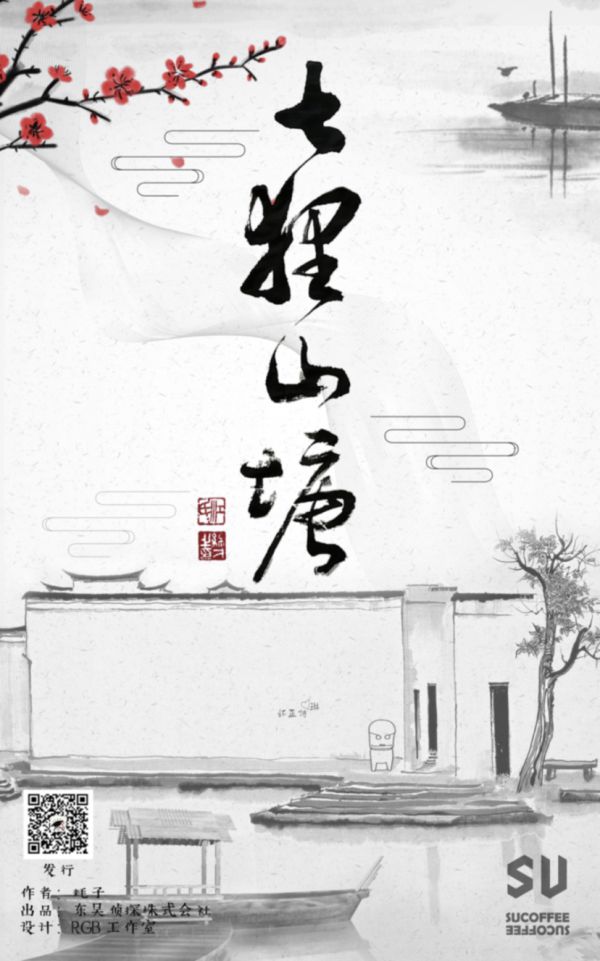 七狸山塘
发行
作者：耗子
出品：东吴侦探株式会社
设计：RGB工作室
SU
SUCOFFEE
SUCOFFEE